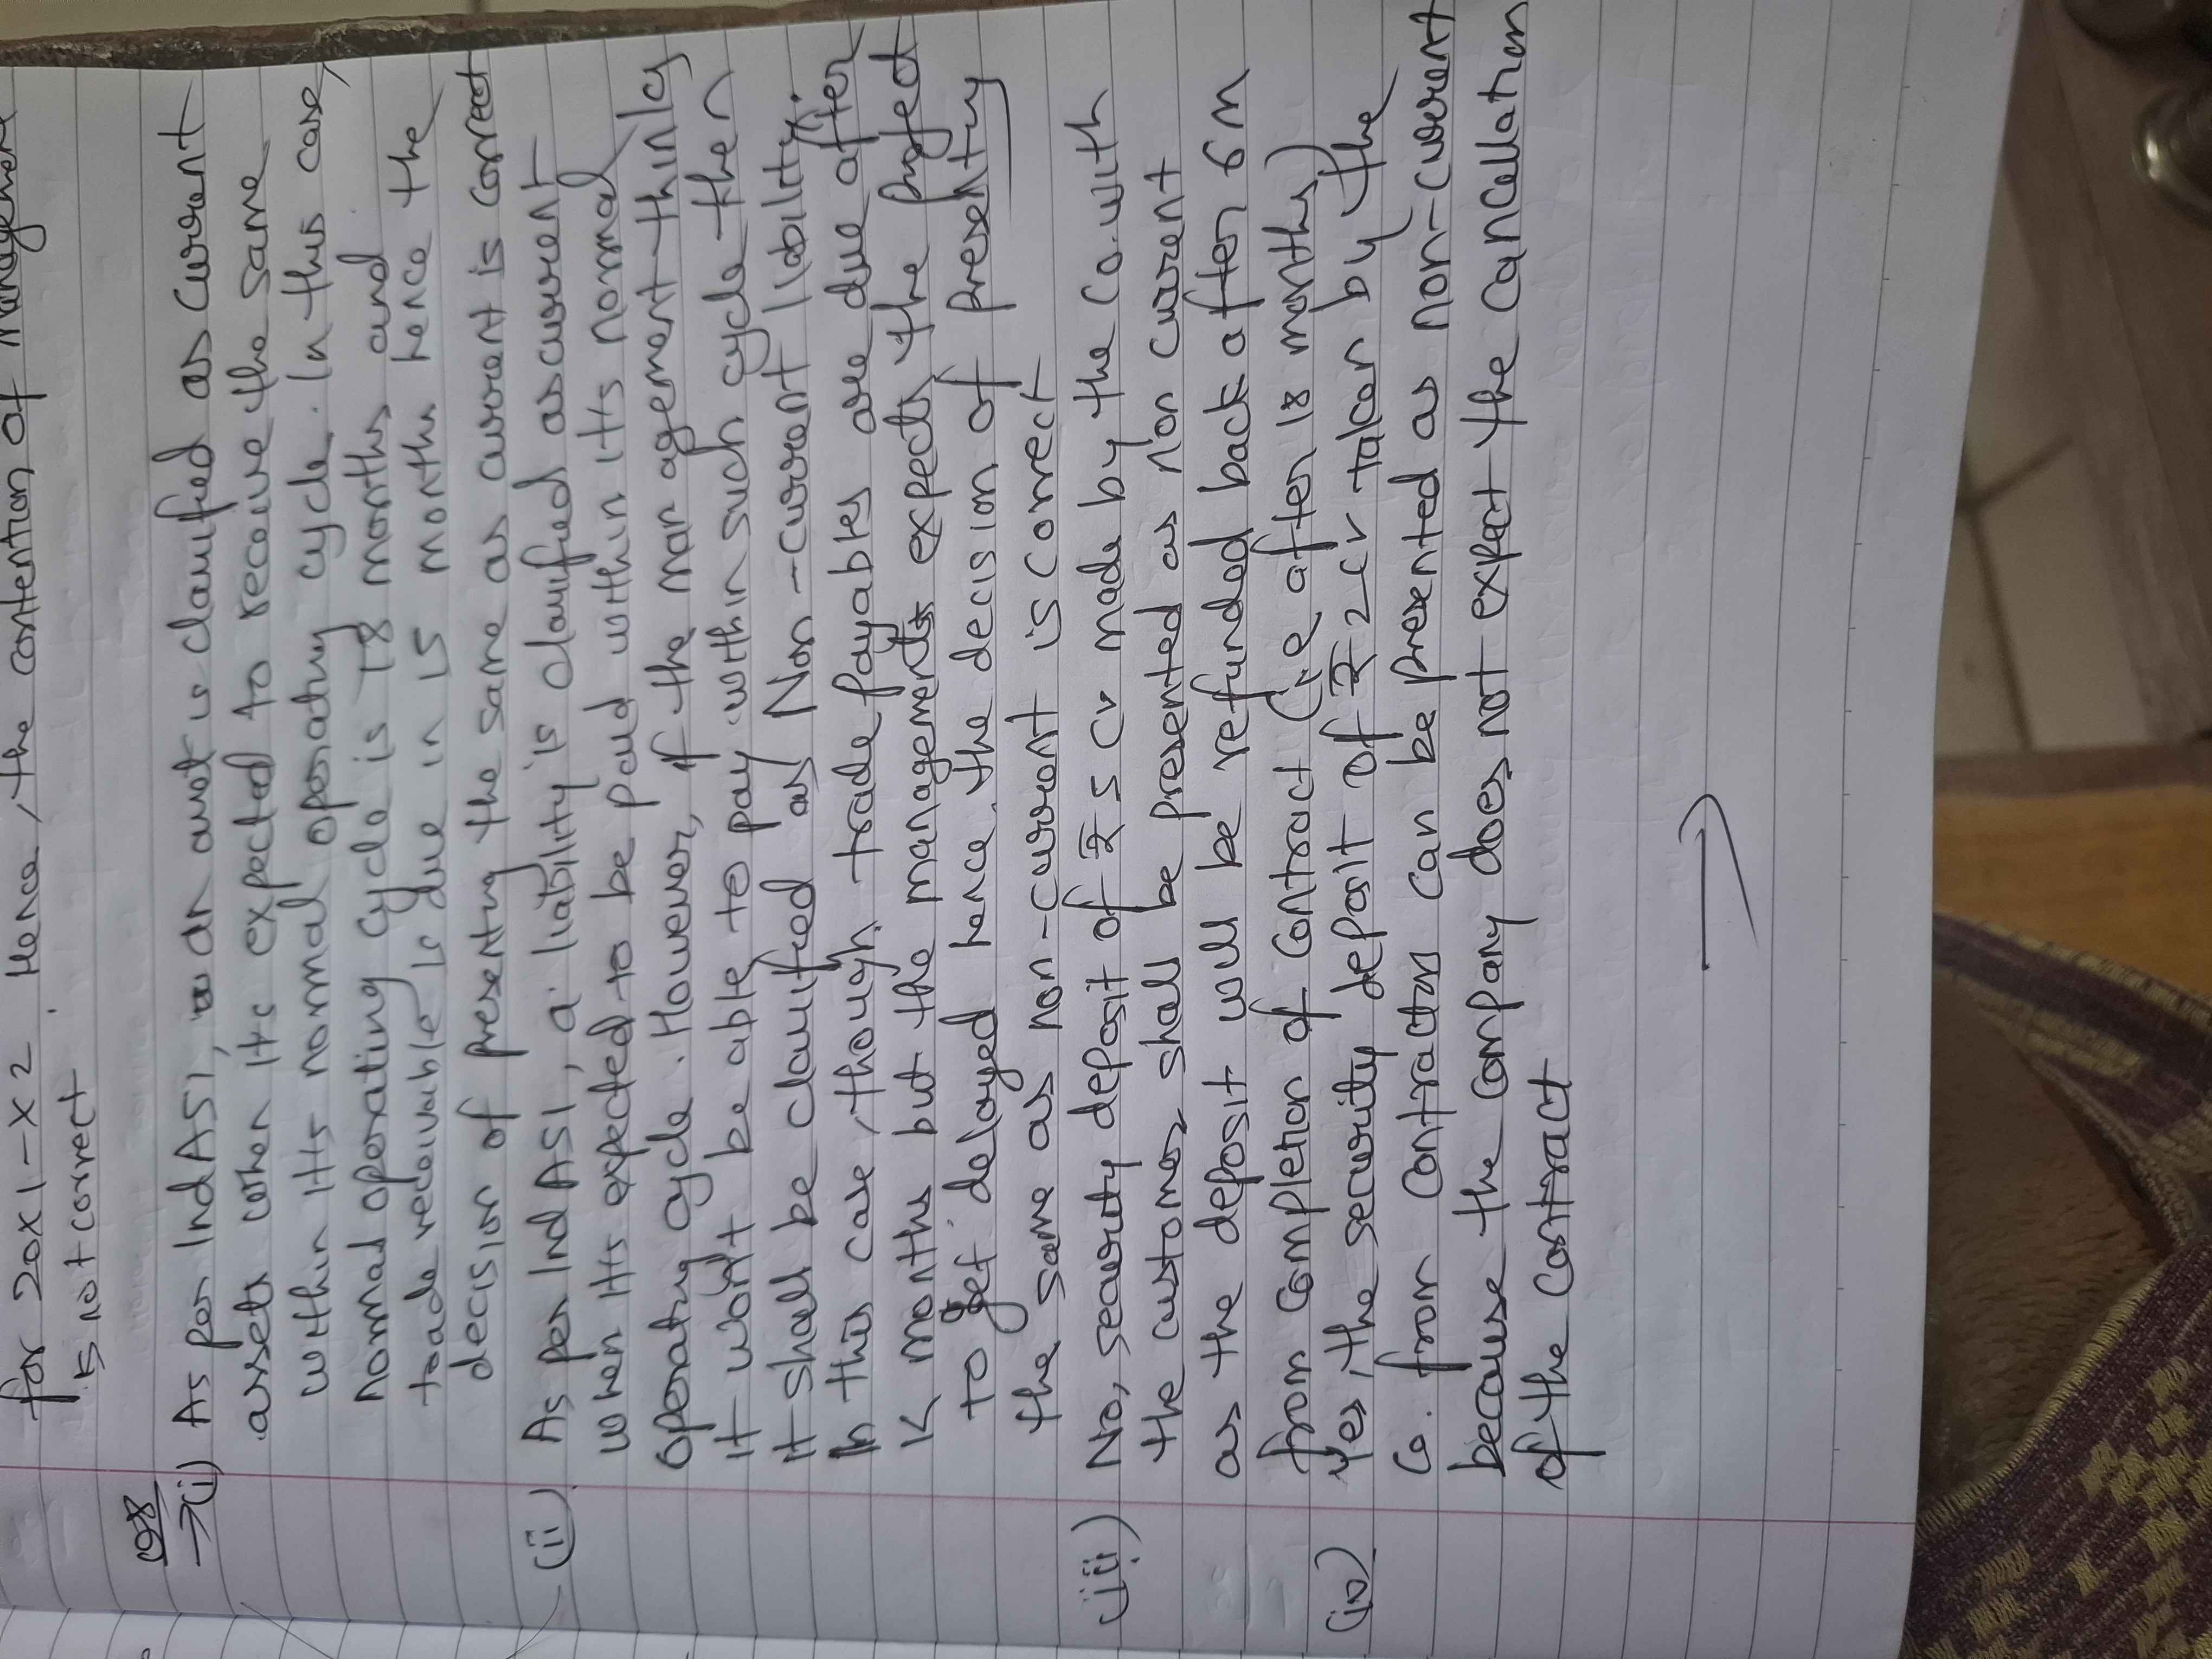 for 20X1-X2. Hence, the contention of management
is not correct
Q8
→(i) As per Ind AS1, an asset is classified as current
assets when its expected to receive the same
within its normal operating cycle. In this case,
normal operating cycle is 18 months and
trade receivable is due in 15 months hence the
decision of presenting the same as current is correct
(ii) As per Ind AS1, a liability is classified as current
when its expected to be paid within its normal
operating cycle. However, if the management thinks
it won't be able to pay within such cycle then
it shall be classified as Non-current liability.
In this case, though trade payables are due after
months but the managements expects the project
to get delayed hence the decision of presenting
the same as non-current is correct
(iii) No, security deposit of ₹ 5 cr made by the Co. with
the customer shall be presented as non current
as the deposit will be refunded back after 6m
from completion of contract (i.e after 18 months)
(iv) Yes, the security deposit of ₹ 2 cr taken by the
Co. from contractors can be presented as non-current
because the company does not expect the cancellation
of the contract